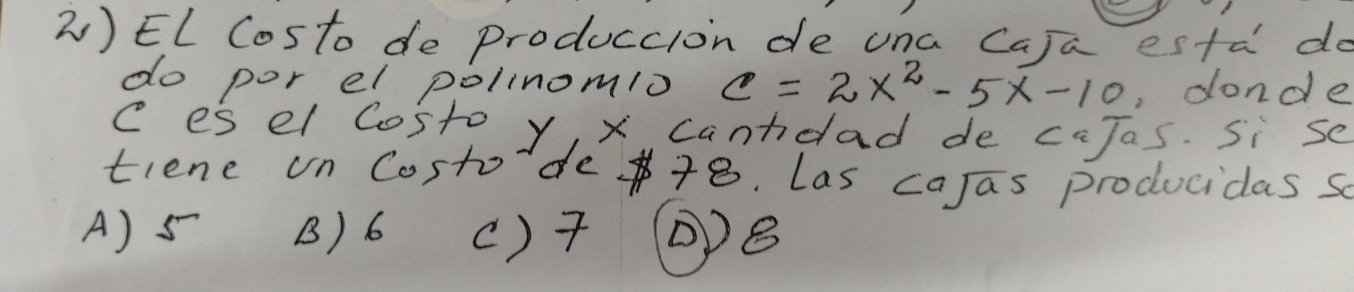 2) El Costo de Producción de una Caja está da
do por el polinomio C = 2x² - 5x - 10, donde
C es el Costo y, x cantidad de cajas. Si se
tiene un Costo de $78. Las cajas producidas so
A) 5 B) 6 C) 7 D) 8